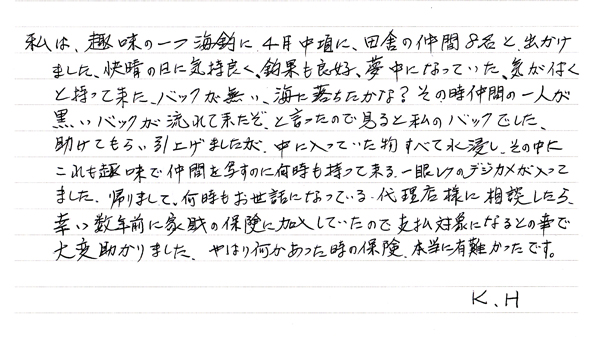 私は、趣味の一つ海釣に、4月中頃に、田舎の仲間8名と、出かけ
ました、快晴の日に気持良く、釣果も良好、夢中になっていた、気が付く
と持って来た、バックが無い、海に落ちたかな？その時仲間の一人が
黒いバックが流れて来たぞ、と言ったので見ると私のバックでした、
助けてもらい引上げましたが、中に入っていた物すべて水浸し、その中に
これも趣味で仲間を写すのに何時も持って来る、一眼レフのデジカメが入って
ました、帰りまして、何時もお世話になっている、代理店様に相談したら、
幸い数年前に家財の保険に加入していたので支払対象になるとの事で
大変助かりました、やはり何かあった時の保険、本当に有難かったです。
K.H